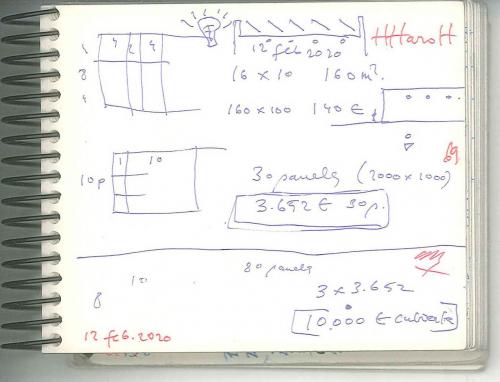 4 2 4
1
8
4
12 feb 2020
16 x 10 160 m².
160 x 100 140 €
69
1 10
10 p
30 panels (2000 x 1000)
3.652 € 30 p.
80 panels
10
8
3 x 3.652
10.000 € cubierta
12 feb. 2020